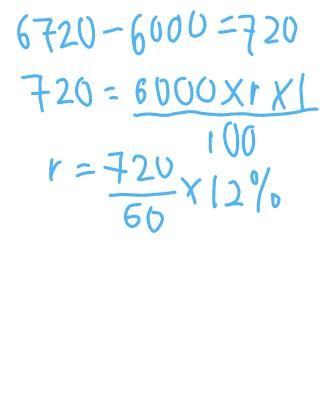 6720-6000=720
720 = 6000×r×1
100
r = 720/60 × 12%